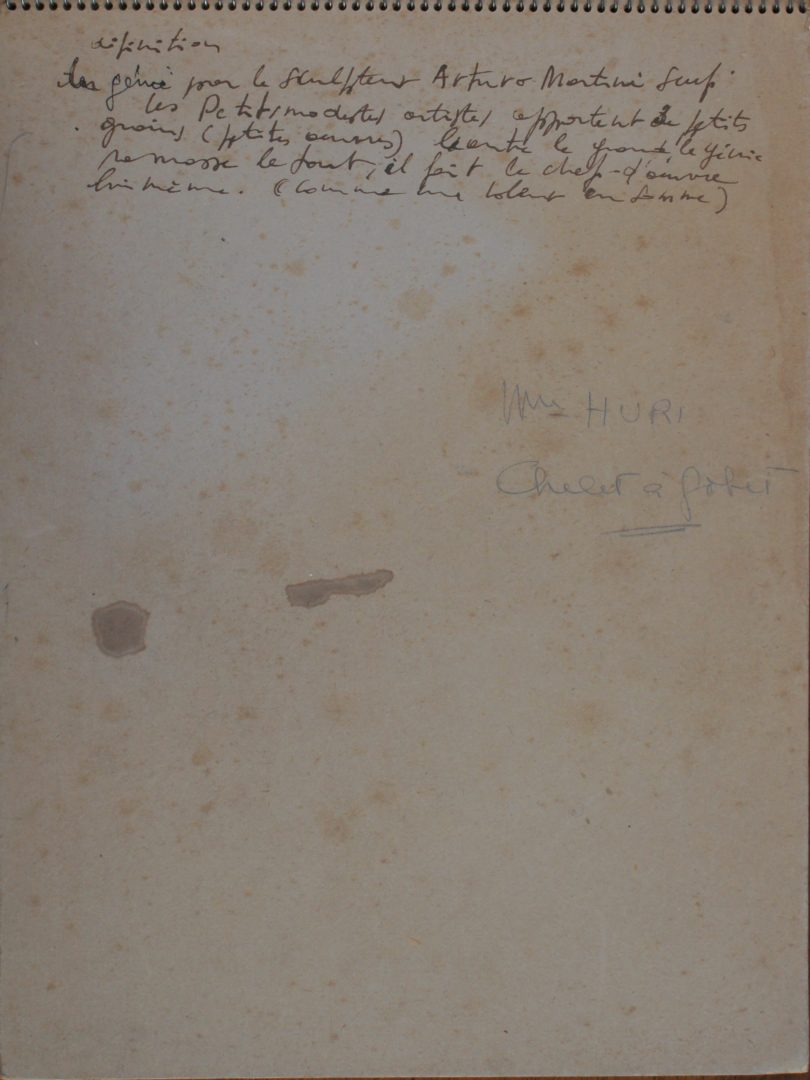 définition
du génie par le sculpteur Arturo Martini Sculp.
les Petits modestes artistes apportent de petits
grains (ptites œuvres) le grand le génie
ramasse le tout, il fait le chef-d'œuvre
lui même. (comme une voleur en somme)
Mme HURI
Chalet à Gobet